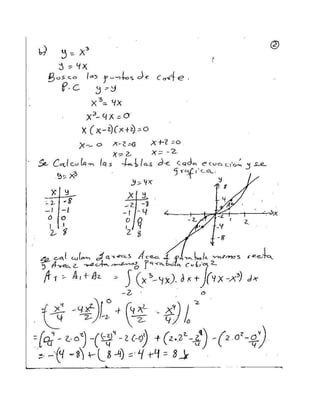 ②
b) y = x³
y = 4x
Busco los puntos de corte.
P.C y = y
x³ = 4x
x³ - 4x = 0
x(x-2)(x+2) = 0
x = 0 x-2=0 x+2=0
x=2 x=-2
Se Calculan las tablas de cada ecuación y se
grafica.
y = x³ y = 4x
x | y x | y
-2 | -8 -2 | -8
-1 | -1 -1 | -4
0 | 0 0 | 0
1 | 1 1 | 4
2 | 8 2 | 8
y
8
4
-2 2 x
-4
-8
se calculan 2 areas Area 1 parabola menos recta
y Area 2 recta menos parabola cubica
A_T = A₁ + A₂ = ∫₋₂⁰ (x³ - 4x) dx + ∫₀² (4x - x³) dx
= (x⁴/4 - 4x²/2) |₋₂⁰ + (4x²/2 - x⁴/4) |₀²
= (0⁴/4 - 2·0²) - ((-2)⁴/4 - 2(-2)²) + (2·2² - 2⁴/4) - (2·0² - 0⁴/4)
= -(4 - 8) + (8 - 4) = 4 + 4 = 8